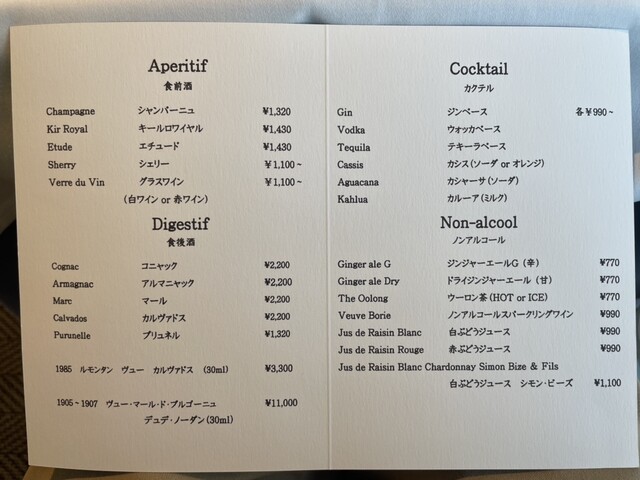 Aperitif
食前酒
Champagne シャンパーニュ ¥1,320
Kir Royal キールロワイヤル ¥1,430
Etude エチュード ¥1,430
Sherry シェリー ¥1,100~
Verre du Vin グラスワイン ¥1,100~
(白ワイン or 赤ワイン)
Digestif
食後酒
Cognac コニャック ¥2,200
Armagnac アルマニャック ¥2,200
Marc マール ¥2,200
Calvados カルヴァドス ¥2,200
Purunelle プリュネル ¥1,320
1985 ルモンタン ヴュー カルヴァドス (30ml) ¥3,300
1905~1907 ヴュー・マール・ド・ブルゴーニュ ¥11,000
デュデ・ノーダン(30ml)
Cocktail
カクテル
Gin ジンベース 各¥990~
Vodka ウォッカベース
Tequila テキーラベース
Cassis カシス(ソーダ or オレンジ)
Aguacana カシャーサ(ソーダ)
Kahlua カルーア(ミルク)
Non-alcool
ノンアルコール
Ginger ale G ジンジャーエールG (辛) ¥770
Ginger ale Dry ドライジンジャーエール (甘) ¥770
The Oolong ウーロン茶(HOT or ICE) ¥770
Veuve Borie ノンアルコールスパークリングワイン ¥990
Jus de Raisin Blanc 白ぶどうジュース ¥990
Jus de Raisin Rouge 赤ぶどうジュース ¥990
Jus de Raisin Blanc Chardonnay Simon Bize & Fils
白ぶどうジュース シモン・ビーズ ¥1,100